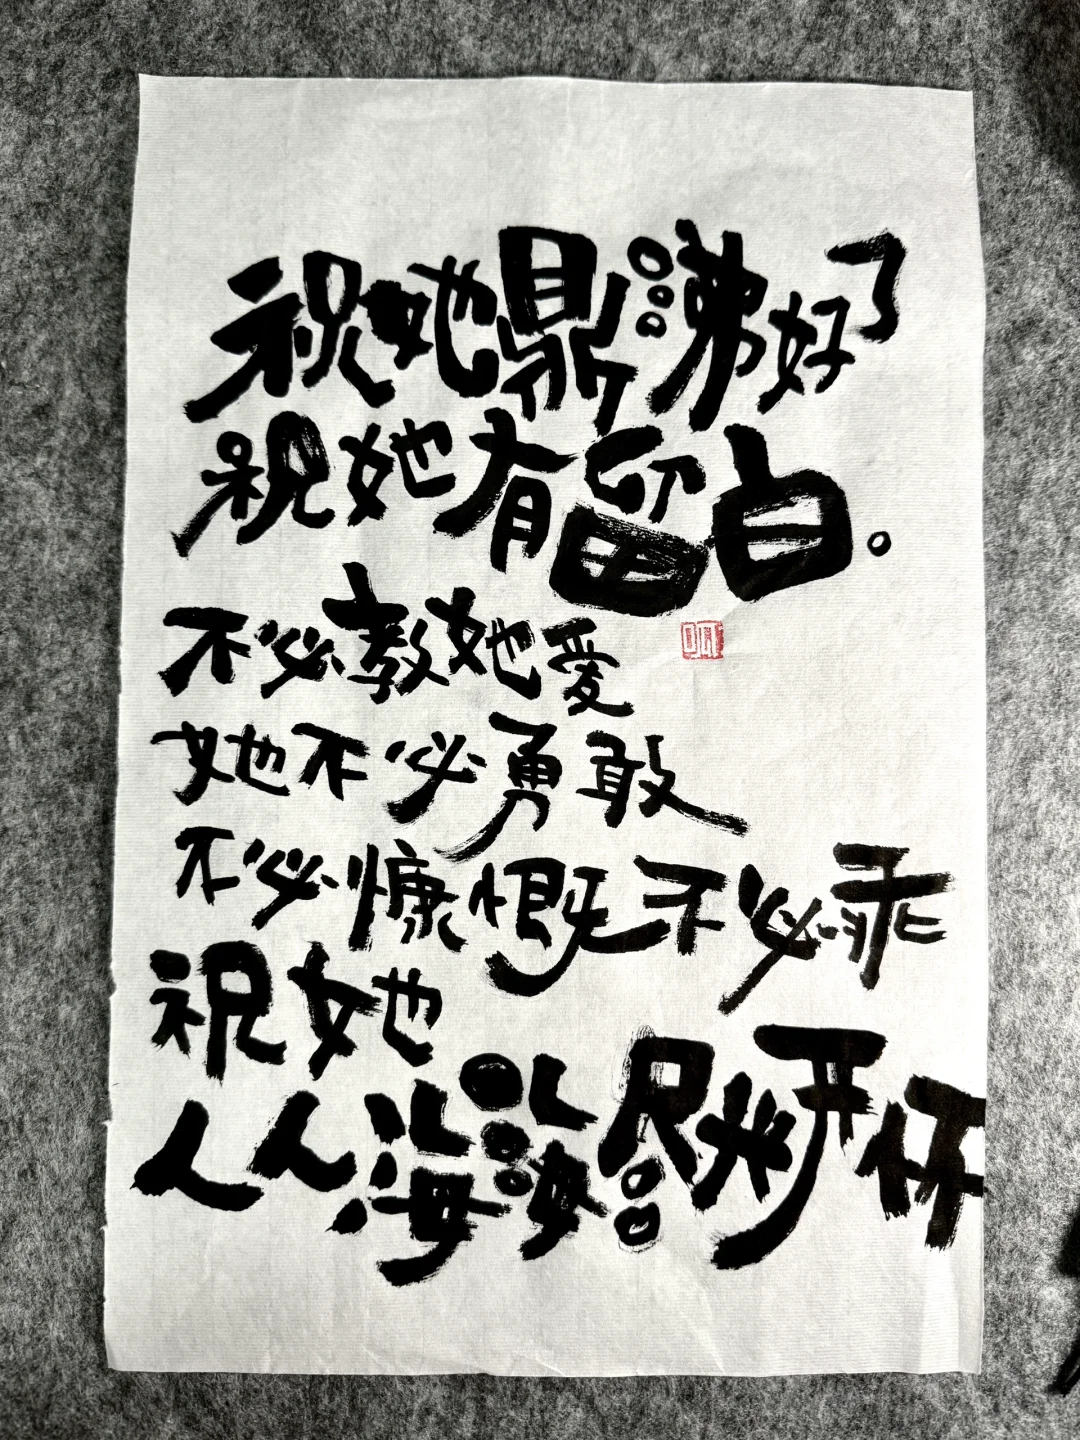 祝她鼎沸好了
祝她有留白。
不必教她爱
她不必勇敢
不必慷慨不必乖
祝她
人人海海尽开怀